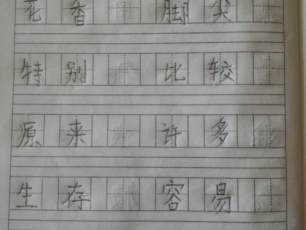 花香 脚尖
特别 比较
原来 许多
生存 容易